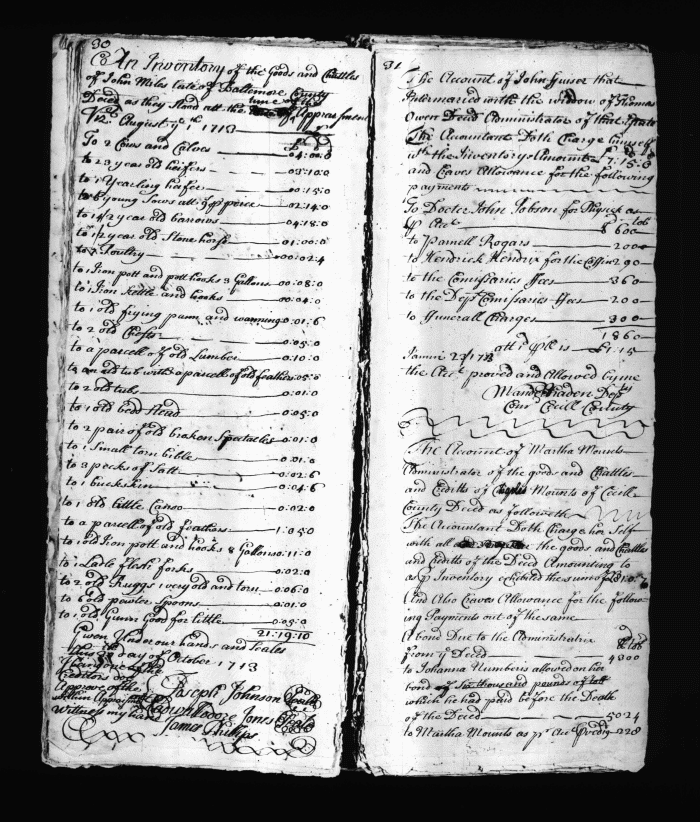 30
An Inventory of the Goods and Chattles
of John Miles late of Baltemore County
Deced as they Stand att the time of the Appraisment
August ye 1th 1713
To 2 Cows and Calves 04:00:0
to 2 3 year old heifers 03:10:0
to 1 Yearling heifer 00:15:0
to 6 young Sows att 9s p peice 02:14:0
to 14 / 2 year old barrows 04:18:0
to 1 / 2 year old Stone horse 01:00:0
to 7 Poultry 00:02:4
to 1 Iron pott and pott hooks 3 Gallons 00:08:0
to 1 Iron kettle and hooks 00:04:0
to 1 old frying pann and warming 0:01:6
to 2 old Chests 0:05:0
to a parcell of old Lumber 0:10:0
to an old tub with a parcell of old feathers 05:0
to 2 old tubs 0:01:0
to 1 old bedd stead 0:05:0
to 2 pair of old broken Spectacles 0:01:0
to 1 Small torn bible 0:01:0
to 3 pecks of Salt 0:02:6
to 1 buckskin 0:04:6
to 1 old little Canoo 0:02:0
to a parcell of old feathers 1:05:0
to 1 old Iron pott and hooks 8 Gallons 0:11:0
to 1 Ladle flesh forks 0:02:0
to 2 old Ruggs 1 very old and torn 0:06:0
to 6 old pewter Spoons 0:01:0
to 1 old Gunn Good for little 0:05:0
21:19:10
Given Under our hands and Seales
this day of October 1713
Creditors
Witness my hand
Joseph Johnson Seale
Jones Seale
James Phillips
31
The Account of John that
Intermaried with the widdow of Thomas
Owen Deced Administrator of that Estate
The Acountant Doth Charge himself
with the Inventorys Amount 7:15:
and Craves Allowance for the following
payments
To Docter John Jobson for Physick as
p Acct lb 600
to Parnell Rogars 200
to Hendrick Hendrix for the Coffin 290
to the Comissaries ffees 360
to the Depy Comissaries ffees 200
to ffunerall Charges 300
1860
att 1d p lb is £7:15
the Acct proved and Allowed by me
Depty
Com Cecill County
The Account of Martha Mounts
Administrator of the goods and Chattles
and Credits of Mounts of Cecill
County Deced as followeth
The Acountant Doth Charge her Self
with all the goods and Chattles
and Credits of the Deced Amounting to
as p Inventory exhibited the sume of
And Also Craves Allowance for the follow-
ing Payments out of the same
A bond Due to the Administratrix
from ye Deced 4300
to Johanna Numbers allowed on her
bond of Six thousand pounds of tob
which he had paid before the Death
of the Deced 5024
to Martha Mounts as pr Acct 228